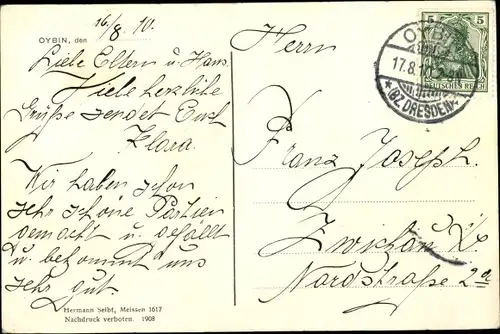 OYBIN, den 16/8. 10.
Liebe Eltern u. Hans.
Viele herzliche
Grüße sendet Euch
Klara.
Wir haben schon
sehr schöne Partien
gemacht u. gefällt
u. bekommt uns
sehr gut
Hermann Seibt, Meissen 1617
Nachdruck verboten. 1908
Herrn
Franz Joseph.
Zwickau i/S.
Nordstraße 2a
5 5
DEUTSCHES REICH
OYBIN
17.8.10
* (BZ. DRESDEN)